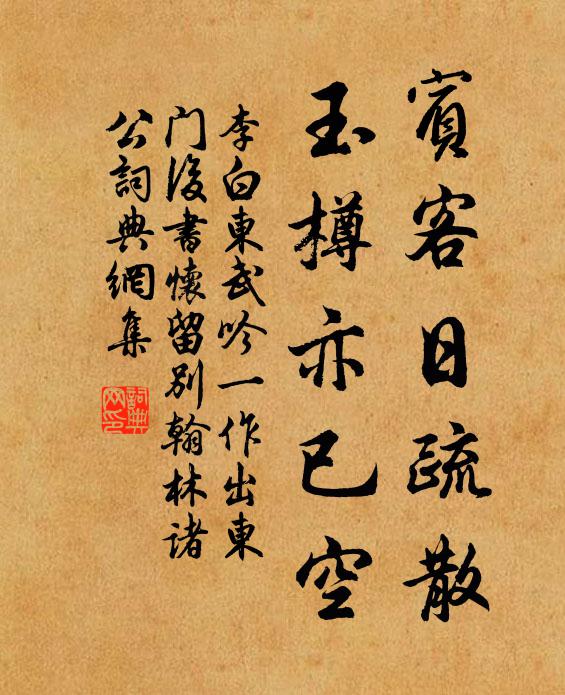 賓客日疏散
玉樽亦已空
李白東武吟一作出東
门後書懷留别翰林諸
公詞典網集
詞典網印